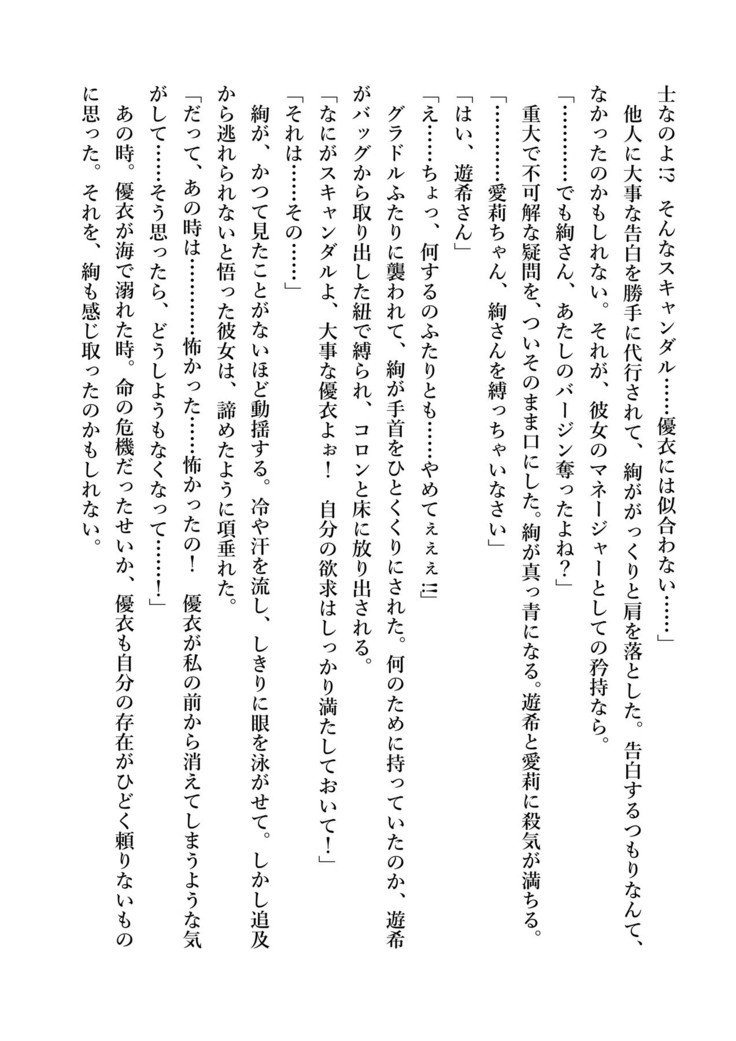 士なのよ!?　そんなスキャンダル……優衣には似合わない……」
　他人に大事な告白を勝手に代行されて、絢ががっくりと肩を落とした。告白するつもりなんて、
なかったのかもしれない。それが、彼女のマネージャーとしての矜持なら。
「…………でも絢さん、あたしのバージン奪ったよね？」
　重大で不可解な疑問を、ついそのまま口にした。絢が真っ青になる。遊希と愛莉に殺気が満ちる。
「…………愛莉ちゃん、絢さんを縛っちゃいなさい」
「はい、遊希さん」
「え……ちょっ、何するのふたりとも……やめてぇぇぇ!!!」
　グラドルふたりに襲われて、絢が手首をひとくくりにされた。何のために持っていたのか、遊希
がバッグから取り出した紐で縛られ、コロンと床に放り出される。
「なにがスキャンダルよ、大事な優衣よぉ！　自分の欲求はしっかり満たしておいて！」
「それは……その……」
　絢が、かつて見たことがないほど動揺する。冷や汗を流し、しきりに眼を泳がせて。しかし追及
から逃れられないと悟った彼女は、諦めたように項垂れた。
「だって、あの時は…………怖かった……怖かったの！　優衣が私の前から消えてしまうような気
がして……そう思ったら、どうしようもなくなって……！」
　あの時。優衣が海で溺れた時。命の危機だったせいか、優衣も自分の存在がひどく頼りないもの
に思った。それを、絢も感じ取ったのかもしれない。